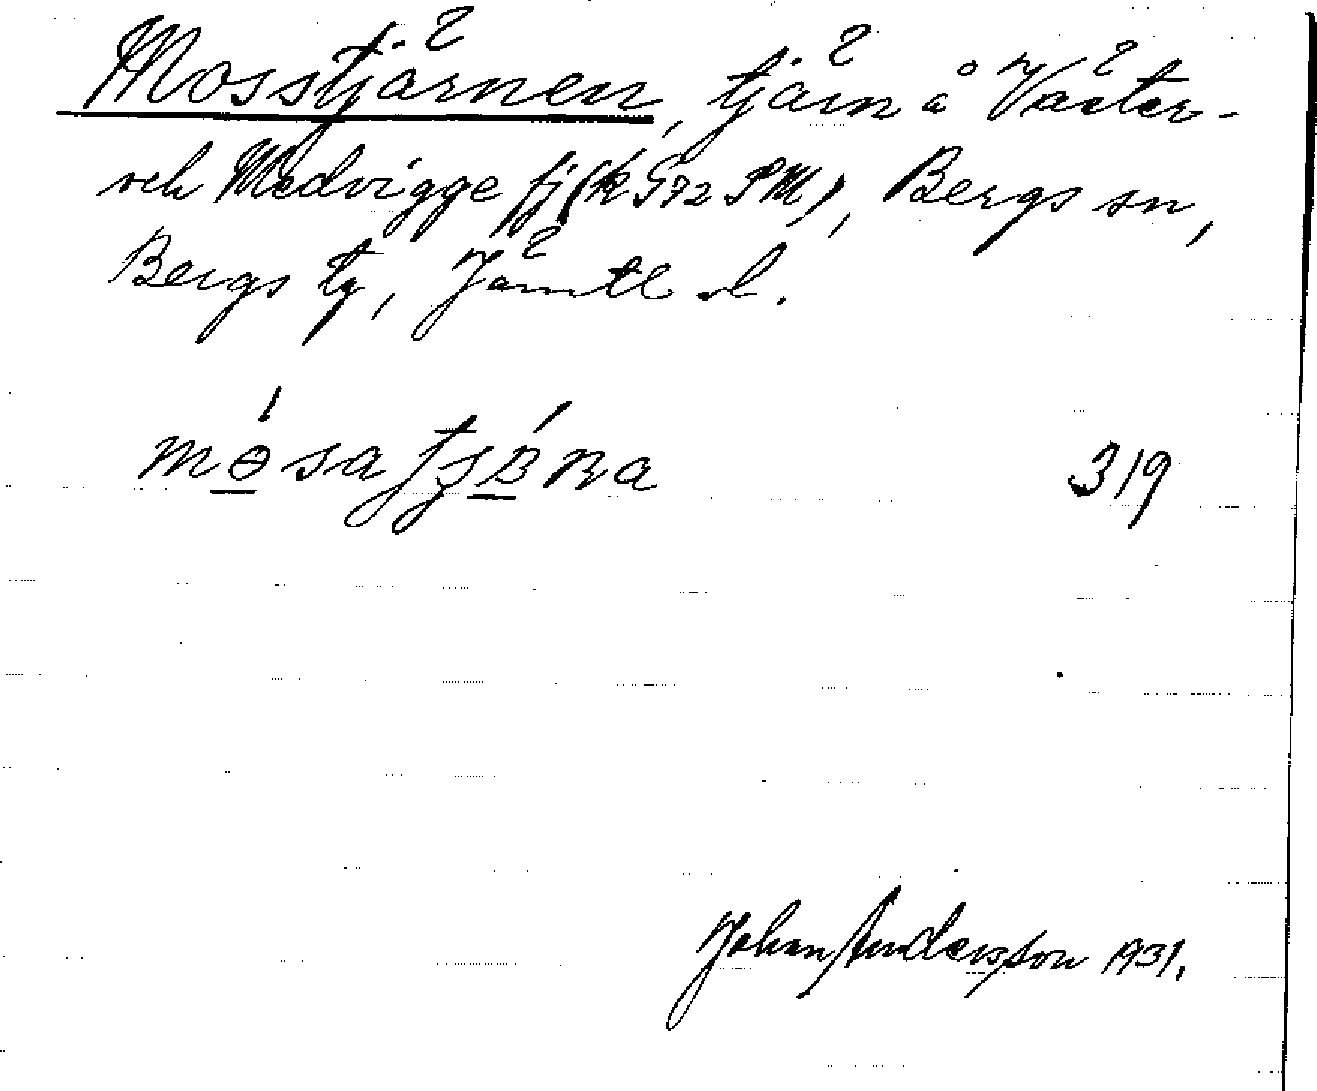 Mosstjärnen, tjärn å Väster-
och Medvigge fj (k 572 PM), Bergs sn,
Bergs tg, Jämtl l.
mǝ́sa tʃɛ́ɴa 319
Johan Andersson 1931.